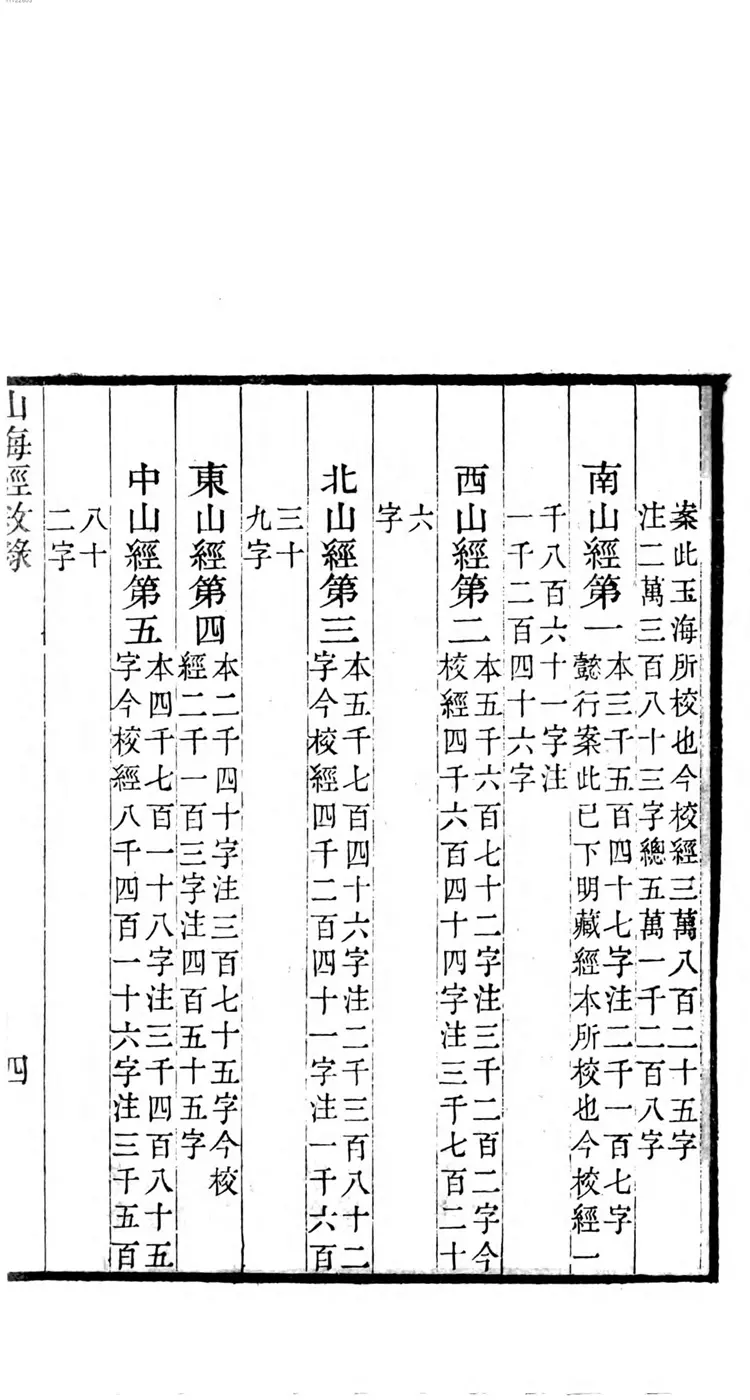 案此玉海所校也今校經三萬八百二十五字
注二萬三百八十三字總五萬一千二百八字
南山經第一
本三千五百四十七字注二千一百七字
懿行案此已下明藏經本所校也今校經一
千八百六十一字注
一千二百四十六字
西山經第二
本五千六百七十二字注三千二百二字今
校經四千六百四十四字注三千七百二十
六
字
北山經第三
本五千七百四十六字注二千三百八十二
字今校經四千二百四十一字注一千六百
三十
九字
東山經第四
本二千四十字注三百七十五字今校
經二千一百三字注四百五十五字
中山經第五
本四千七百一十八字注三千四百八十五
字今校經八千四百一十六字注三千五百
八十
二字
山海經攷錄
四